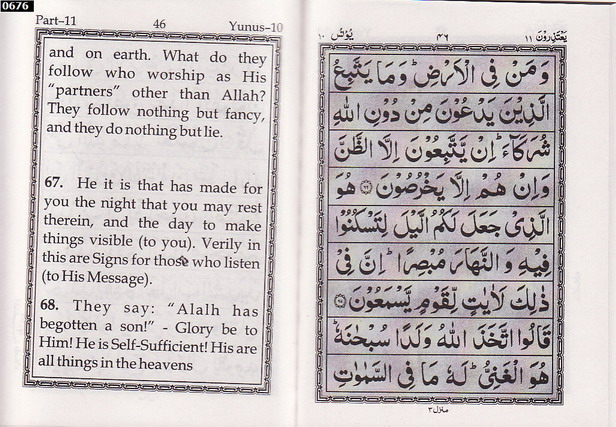 0676
Part–11 46 Yunus–10
and on earth. What do they
follow who worship as His
“partners” other than Allah?
They follow nothing but fancy,
and they do nothing but lie.
67. He it is that has made for
you the night that you may rest
therein, and the day to make
things visible (to you). Verily in
this are Signs for those who listen
(to His Message).
68. They say: “Alalh has
begotten a son!” - Glory be to
Him! He is Self-Sufficient! His are
all things in the heavens
يَعْتَذِرُوْنَ ١١ ٤٦ يُوْنُسُ ١٠
وَمَنْ فِى الْاَرْضِ ؕ وَمَا يَتَّبِعُ
الَّذِيْنَ يَدْعُوْنَ مِنْ دُوْنِ اللّٰهِ
شُرَكَآءَ ؕ اِنْ يَّتَّبِعُوْنَ اِلَّا الظَّنَّ
وَاِنْ هُمْ اِلَّا يَخْرُصُوْنَ ﴿٦٦﴾ هُوَ
الَّذِىْ جَعَلَ لَكُمُ الَّيْلَ لِتَسْكُنُوْا
فِيْهِ وَ النَّهَارَ مُبْصِرًا ؕ اِنَّ فِىْ
ذٰلِكَ لَاٰيٰتٍ لِّقَوْمٍ يَّسْمَعُوْنَ ﴿٦٧﴾
قَالُوا اتَّخَذَ اللّٰهُ وَلَدًا سُبْحٰنَهٗ ؕ
هُوَ الْغَنِىُّ ؕ لَهٗ مَا فِى السَّمٰوٰتِ
منزل ٣